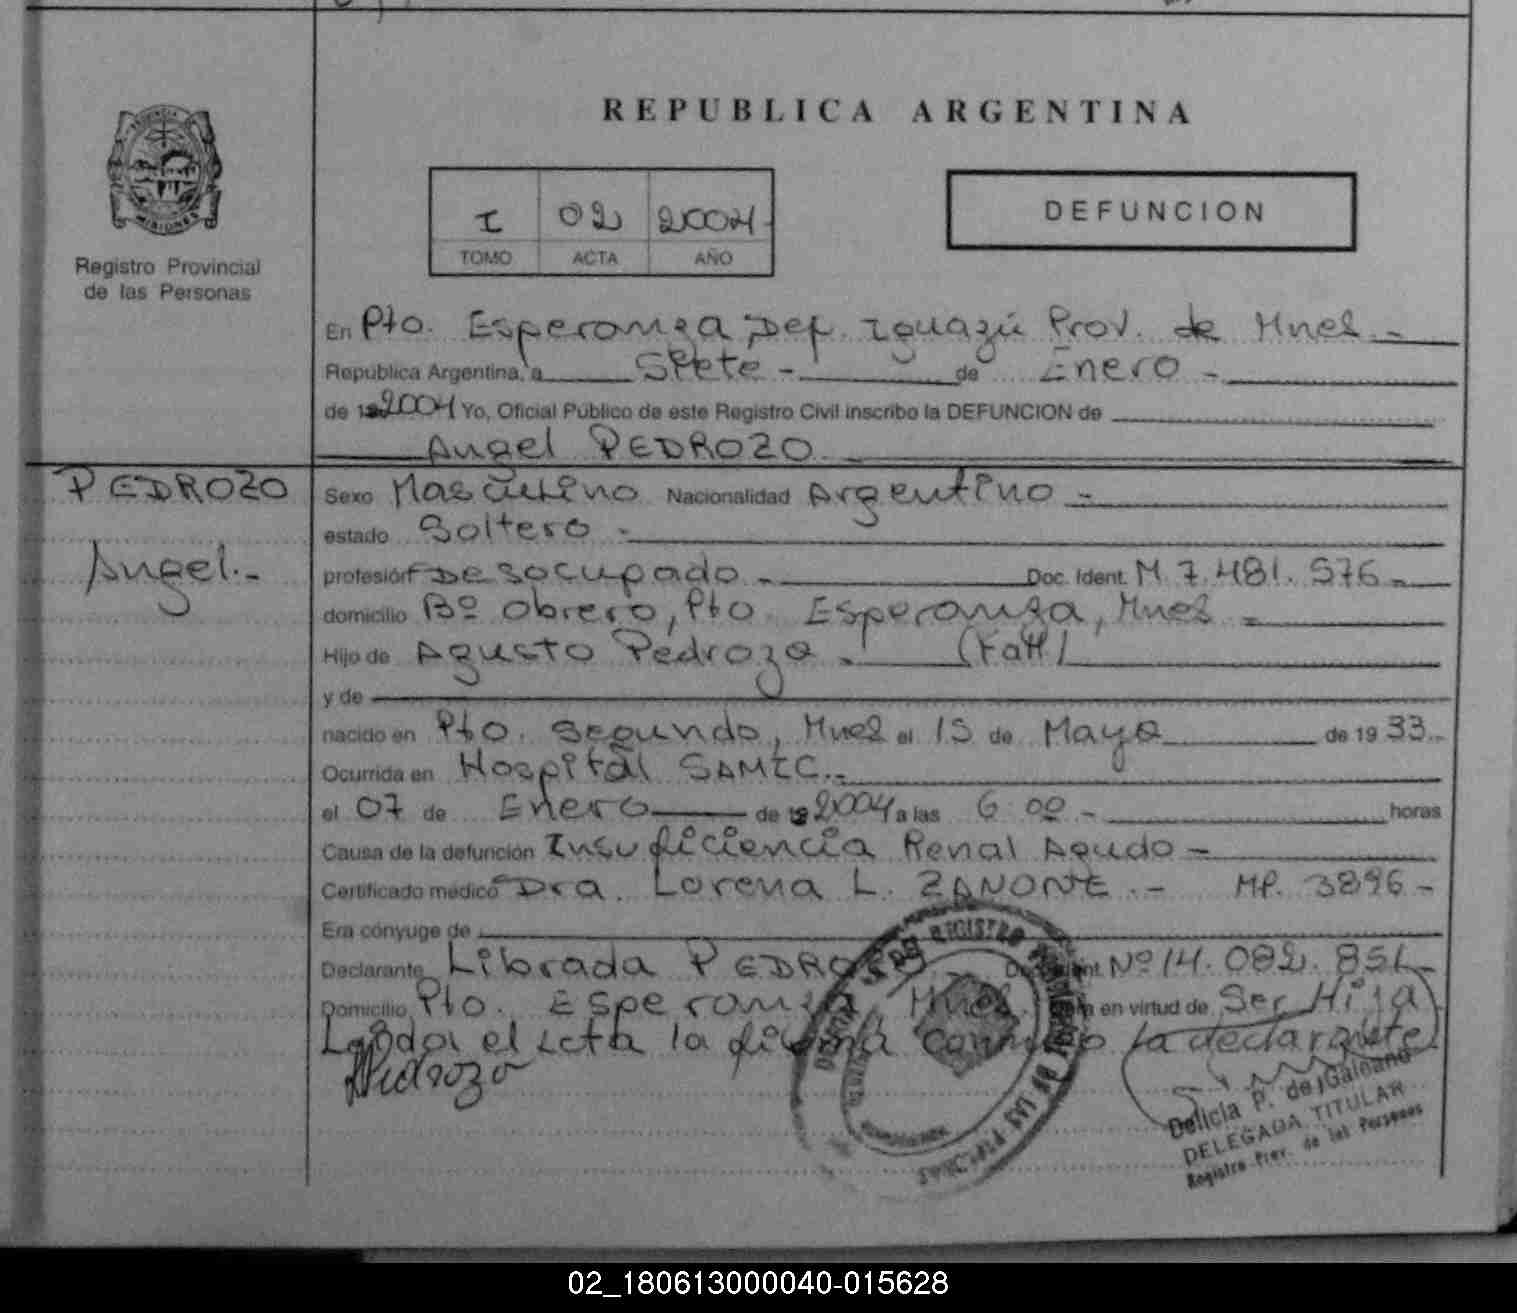 REPUBLICA ARGENTINA
MISIONES
Registro Provincial
de las Personas
I 02 2004
TOMO ACTA AÑO
DEFUNCION
En Pto. Esperanza, Dep. Iguazú Prov. de Mnes.-
República Argentina, a Siete - de Enero -
de 2004 Yo, Oficial Público de este Registro Civil inscribo la DEFUNCION de
Angel PEDROZO.
PEDROZO
Angel.-
Sexo Masculino Nacionalidad Argentino -
estado Soltero -
profesión Desocupado - Doc. Ident. M 7.481.576-
domicilio Bº Obrero, Pto. Esperanza, Mnes -
Hijo de Agusto Pedrozo - (Fall)
y de
nacido en Pto. Segundo, Mnes el 15 de Mayo de 1933.-
Ocurrida en Hospital SAMIC.-
el 07 de Enero de 2004 a las 6:00 - horas
Causa de la defunción Insuficiencia Renal Agudo -
Certificado médico Dra. Lorena L. ZANONE.- MP. 3896-
Era cónyuge de
Declarante Librada PEDROZO Nº 14.082.851-
Domicilio Pto. Esperanza, Mnes. en virtud de Ser Hija
el Acta la firma conmigo la declarante.
Pedrozo
REGISTRO DE LAS PERSONAS
Delicia P. de Galeano
DELEGADA TITULAR
Registro Prov. de las Personas
02_180613000040-015628